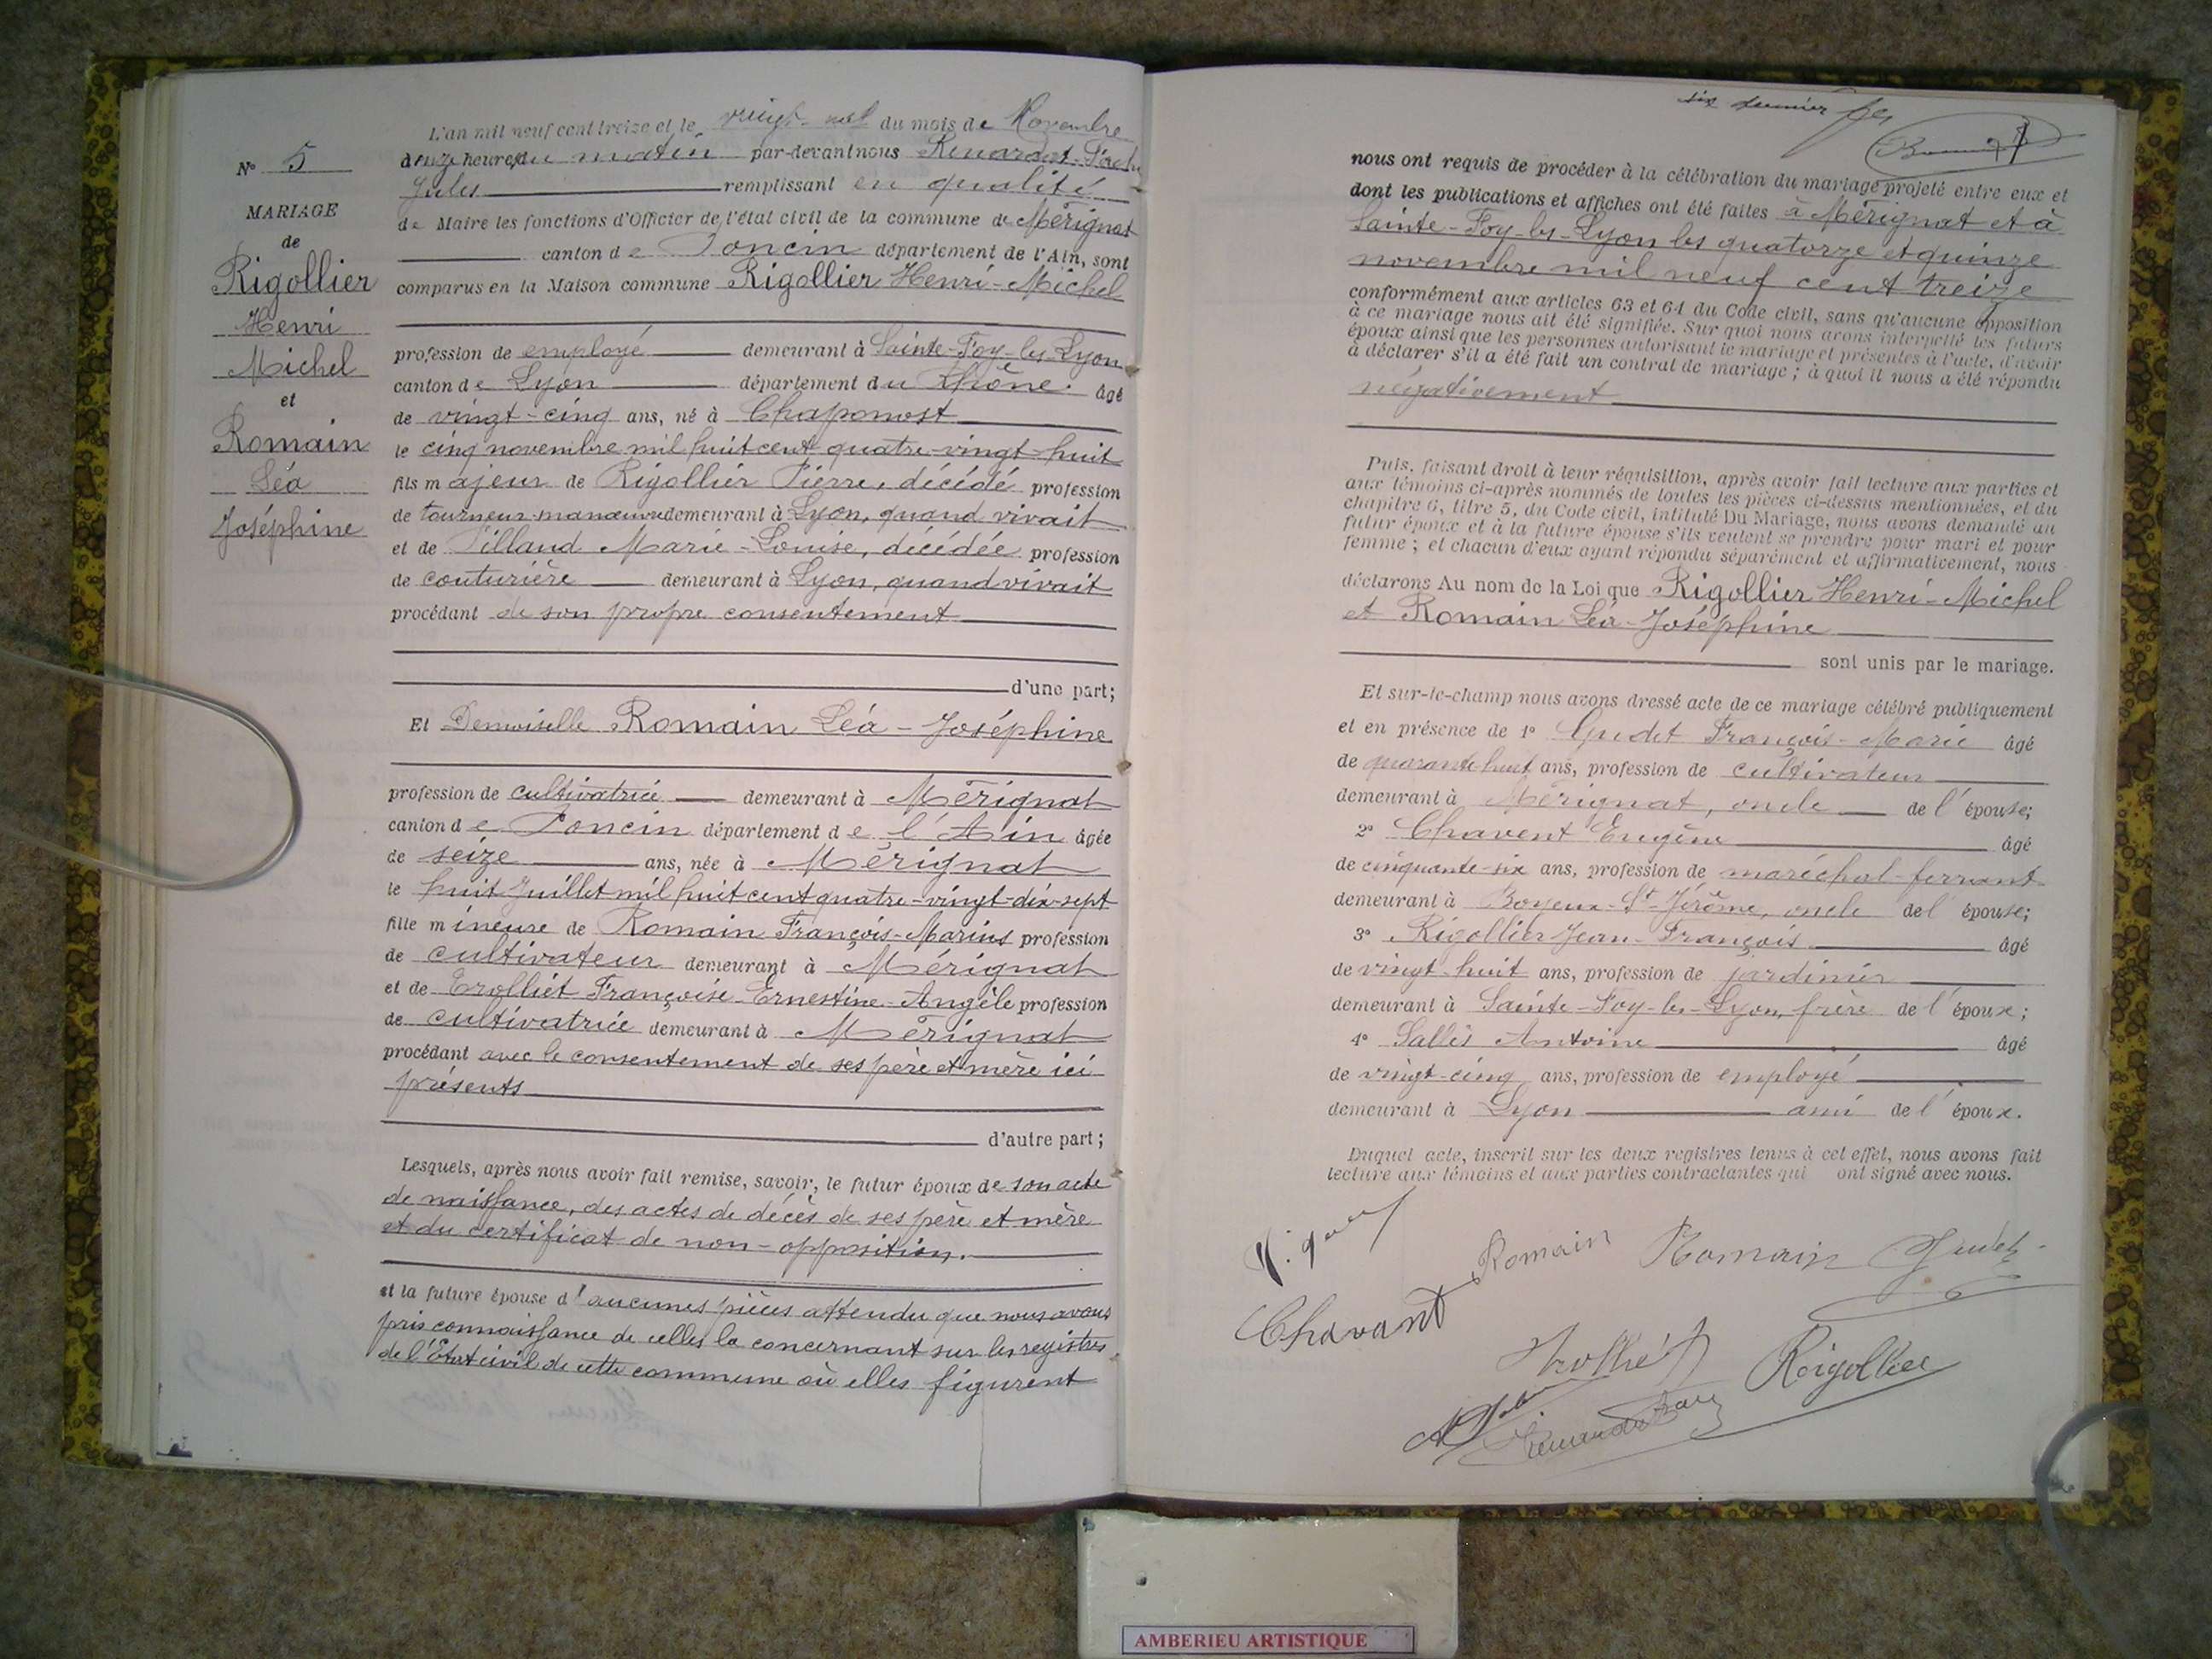 N° 5
MARIAGE
de
Rigollier
Henri
Michel
et
Romain
Léa
Joséphine
L'an mil neuf cent treize et le vingt- du mois de Novembre
heures du matin par-devant nous
Jules remplissant en qualité
de Maire les fonctions d'Officier de l'état civil de la commune de Mérignat
canton de Poncin département de l'Ain, sont
comparus en la Maison commune Rigollier Henri-Michel
profession de employé demeurant à Sainte-Foy-les-Lyon
canton de Lyon département du Rhône âgé
de vingt-cinq ans, né à Chaponost
le cinq novembre mil huit cent quatre-vingt-huit
fils majeur de Rigollier Pierre, décédé profession
de tourneur-manœuvre demeurant à Lyon, quand vivait
et de Pilland Marie-Louise, décédée profession
de couturière demeurant à Lyon, quand vivait
procédant de son propre consentement
d'une part;
Et Demoiselle Romain Léa-Joséphine
profession de cultivatrice demeurant à Mérignat
canton de Poncin département de l'Ain âgée
de seize ans, née à Mérignat
le huit Juillet mil huit cent quatre-vingt-dix-sept
fille mineure de Romain François-Marius profession
de cultivateur demeurant à Mérignat
et de Trolliet Françoise-Ernestine-Angèle profession
de cultivatrice demeurant à Mérignat
procédant avec le consentement de ses père et mère ici
présents
d'autre part;
Lesquels, après nous avoir fait remise, savoir, le futur époux de son acte
de naissance, des actes de décès de ses père et mère
et du certificat de non-opposition.
et la future épouse d'aucunes pièces attendu que nous avons
pris connaissance de celles la concernant sur les registres
de l'Etat civil de cette commune où elles figurent
six dernier
nous ont requis de procéder à la célébration du mariage projeté entre eux et
dont les publications et affiches ont été faites à Mérignat et à
Sainte-Foy-les-Lyon les quatorze et quinze
novembre mil neuf cent treize
conformément aux articles 63 et 64 du Code civil, sans qu'aucune opposition
à ce mariage nous ait été signifiée. Sur quoi nous avons interpellé les futurs
époux ainsi que les personnes autorisant le mariage et présentes à l'acte, d'avoir
à déclarer s'il a été fait un contrat de mariage; à quoi il nous a été répondu
négativement
Puis, faisant droit à leur réquisition, après avoir fait lecture aux parties et
aux témoins ci-après nommés de toutes les pièces ci-dessus mentionnées, et du
chapitre 6, titre 5, du Code civil, intitulé Du Mariage, nous avons demandé au
futur époux et à la future épouse s'ils veulent se prendre pour mari et pour
femme; et chacun d'eux ayant répondu séparément et affirmativement, nous
déclarons Au nom de la Loi que Rigollier Henri-Michel
et Romain Léa-Joséphine
sont unis par le mariage.
Et sur-le-champ nous avons dressé acte de ce mariage célébré publiquement
et en présence de 1° Gudet François-Marie âgé
de quarante-huit ans, profession de cultivateur
demeurant à Mérignat, oncle de l'épouse;
2° Chavent Eugène âgé
de cinquante-six ans, profession de maréchal-ferrant
demeurant à Boyeux-St-Jérôme, oncle de l'épouse;
3° Rigollier Jean-François âgé
de vingt-huit ans, profession de jardinier
demeurant à Sainte-Foy-les-Lyon, frère de l'époux;
4° Sallès Antoine âgé
de vingt-cinq ans, profession de employé
demeurant à Lyon ami de l'époux.
Duquel acte, inscrit sur les deux registres tenus à cet effet, nous avons fait
lecture aux témoins et aux parties contractantes qui ont signé avec nous.
Romain Romain Gudet
Chavant
Rigollier
AMBERIEU ARTISTIQUE